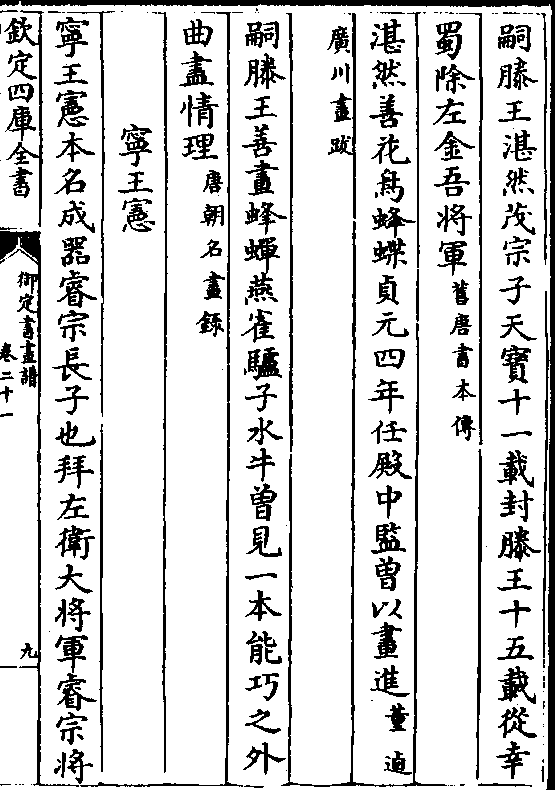 嗣滕王湛然茂宗子天寶十一載封滕王十五載從幸
蜀除左金吾將軍舊唐書本傳
湛然善花鳥蜂蝶貞元四年任殿中監曾以畫進董逌
廣川畫跋
嗣滕王善畫蜂蟬燕雀驢子水牛曾見一本能巧之外
曲盡情理唐朝名畫錄
寧王憲
寧王憲本名成器睿宗長子也拜左衛大將軍睿宗將
欽定四庫全書
御定書畫譜
卷二十一
九